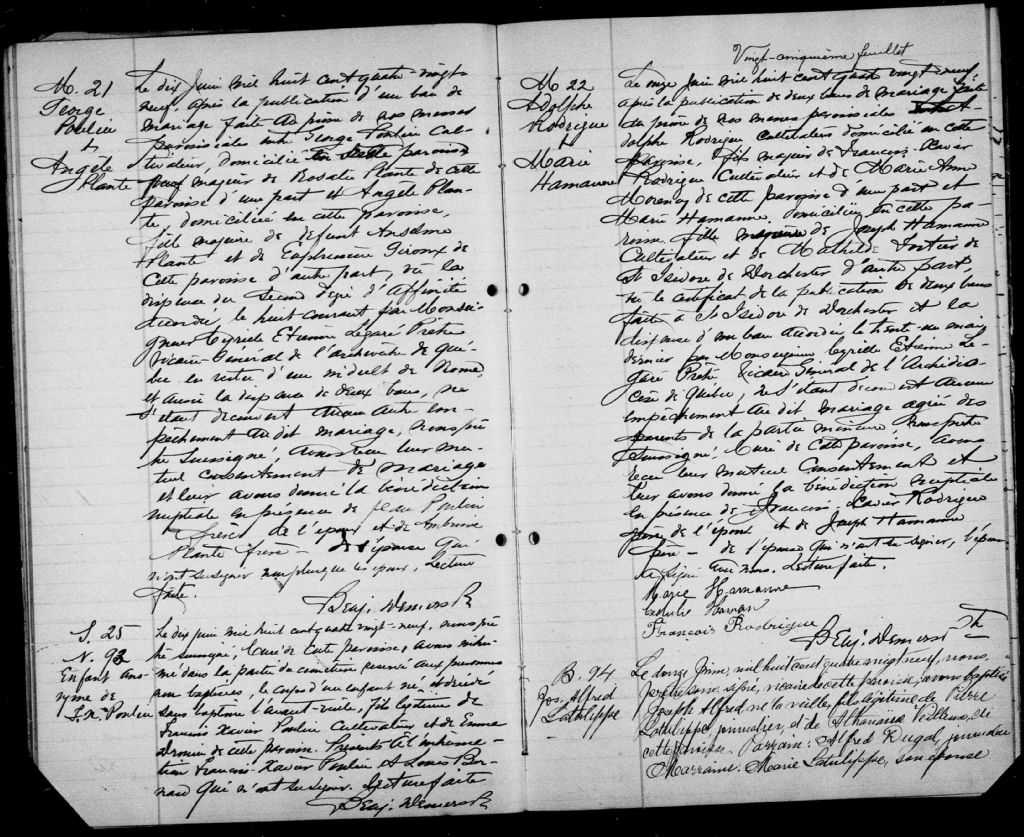 M. 21
George
Poulin
+
Angèle
Plante
Le dix Juin mil huit cent quatre-vingt
neuf, après la publication d'un ban de
mariage faite au prône de nos messes
paroissiales entre George Poulin Cul-
tivateur, domicilié en cette paroisse
majeur de Rosalie Plante de cette
paroisse d'une part et Angèle Plan-
te, domiciliée en cette paroisse,
fille majeure de défunt Anselme
Plante et de Euphrosine Giroux de
cette paroisse d'autre part, vu la
dispense du second degré d'affinité
accordée le huit courant par Monsei-
gneur Cyrille Etienne Légaré Prêtre
Vicaire-Général de l'archevêché de Qué-
bec en vertu d'un indult de Rome,
et aussi la dispense de deux bans, ne
s'étant découvert aucun autre em-
pêchement au dit mariage, nous prê-
tre soussigné, avons reçu leur mu-
tuel consentement de mariage
et leur avons donné la bénédiction
nuptiale en présence de Jean Poulin
frère de l'époux et de Ambroise
Plante frère - de l'épouse qui
n'ont su signer non plus que les époux, Lecture
faite.
Benj. Demers Ptre
S. 25
N. 93
Enfant ano-
nyme de
F. X. Poulin
Le dix juin mil huit cent quatre vingt-neuf, nous prê-
tre soussigné, Curé de cette paroisse, avons inhu-
mé dans la partie du cimetière réservé aux personnes
non baptisées, le corps d'un enfant né et décédé
sans baptême l'avant-veille, fils légitime de
François Xavier Poulin Cultivateur et de Emma
Drouin de cette paroisse. Présents à l'inhuma-
tion François-Xavier Poulin et Louis Ber-
nard qui n'ont su signer. Lecture faite
Benj. Demers Ptre
Vingt-cinquième feuillet
M 22
Adolphe
Rodrigue
+
Marie
Hamanne
Le onze Juin mil huit cent quatre vingt neuf,
après la publication de deux bans de mariage faite
au prône de nos messes paroissiales A-
dolphe Rodrigue Cultivateur domicilié en cette
paroisse, fils majeur de François-Xavier
Rodrigue Cultivateur et de Marie Anne
Morency de cette paroisse d'une part et
Marie Hamanne, domiciliée en cette pa-
roisse fille mineure de Joseph Hamanne
Cultivateur et de Mathilde Fortier de
St Isidore de Dorchester d'autre part,
vu le certificat de la publication de deux bans
faite à St Isidore de Dorchester et la
dispense d'un ban accordée le trente-un mai
dernier par Monseigneur Cyrille Etienne Lé-
garé Prêtre Vicaire Général de l'Archidio-
cèse de Québec, ne s'étant découvert aucun
empêchement au dit mariage agréé des
parents de la partie mineure nous prêtre
soussigné, Curé de cette paroisse, avons
reçu leur mutuel consentement et
leur avons donné la bénédiction nuptiale
en présence de François Xavier Rodrigue
père de l'époux et de Joseph Hamanne
père - de l'épouse qui n'ont su signer, l'épouse
a signé avec nous. Lecture faite.
Marie Hamanne
François Rodrigue
Benj. Demers Ptre
B. 94
Jos. Alfred
Latulippe
Le douze Juin, mil huit cent quatre vingt neuf, nous,
prêtre soussigné, vicaire de cette paroisse, avons baptisé
Joseph Alfred né la veille, fils légitime de Pierre
Latulippe, journalier, et de Athanaïse Veilleux, de
cette paroisse. Parrain: Alfred Dugal, journalier
Marraine: Marie Latulippe, son épouse